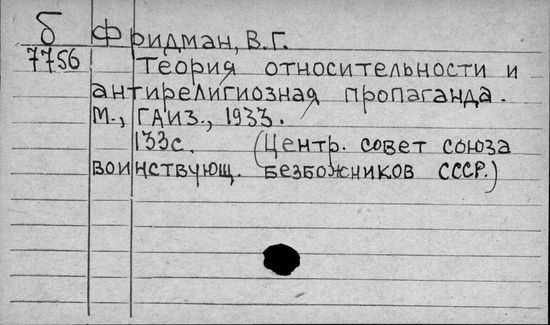 б Фридман, В.Г.
7756 Теория относительности и
антирелигиозная пропаганда.
М., ГАИЗ., 1933.
133с. (Центр. совет союза
воинствующ. безбожников СССР.)